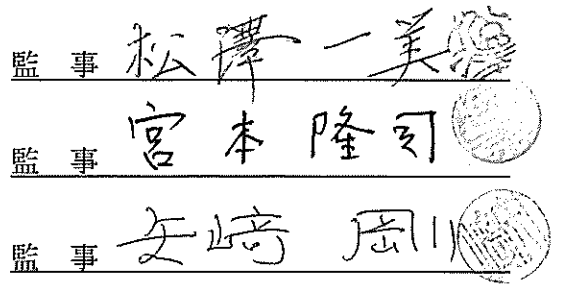 監事 松澤一美
監事 宮本隆司
監事 矢﨑剛